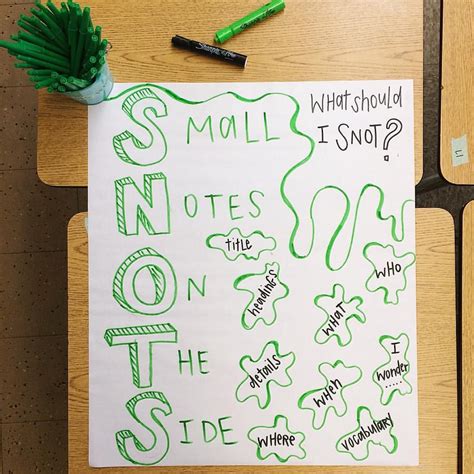 SMALL
NOTES
ON
THE
SIDE
WHAT SHOULD
I SNOT?
title
headings
WHO
WHAT
details
when
I
wonder
.....
WHERE
vocabulary
Sharpie
Sharpie